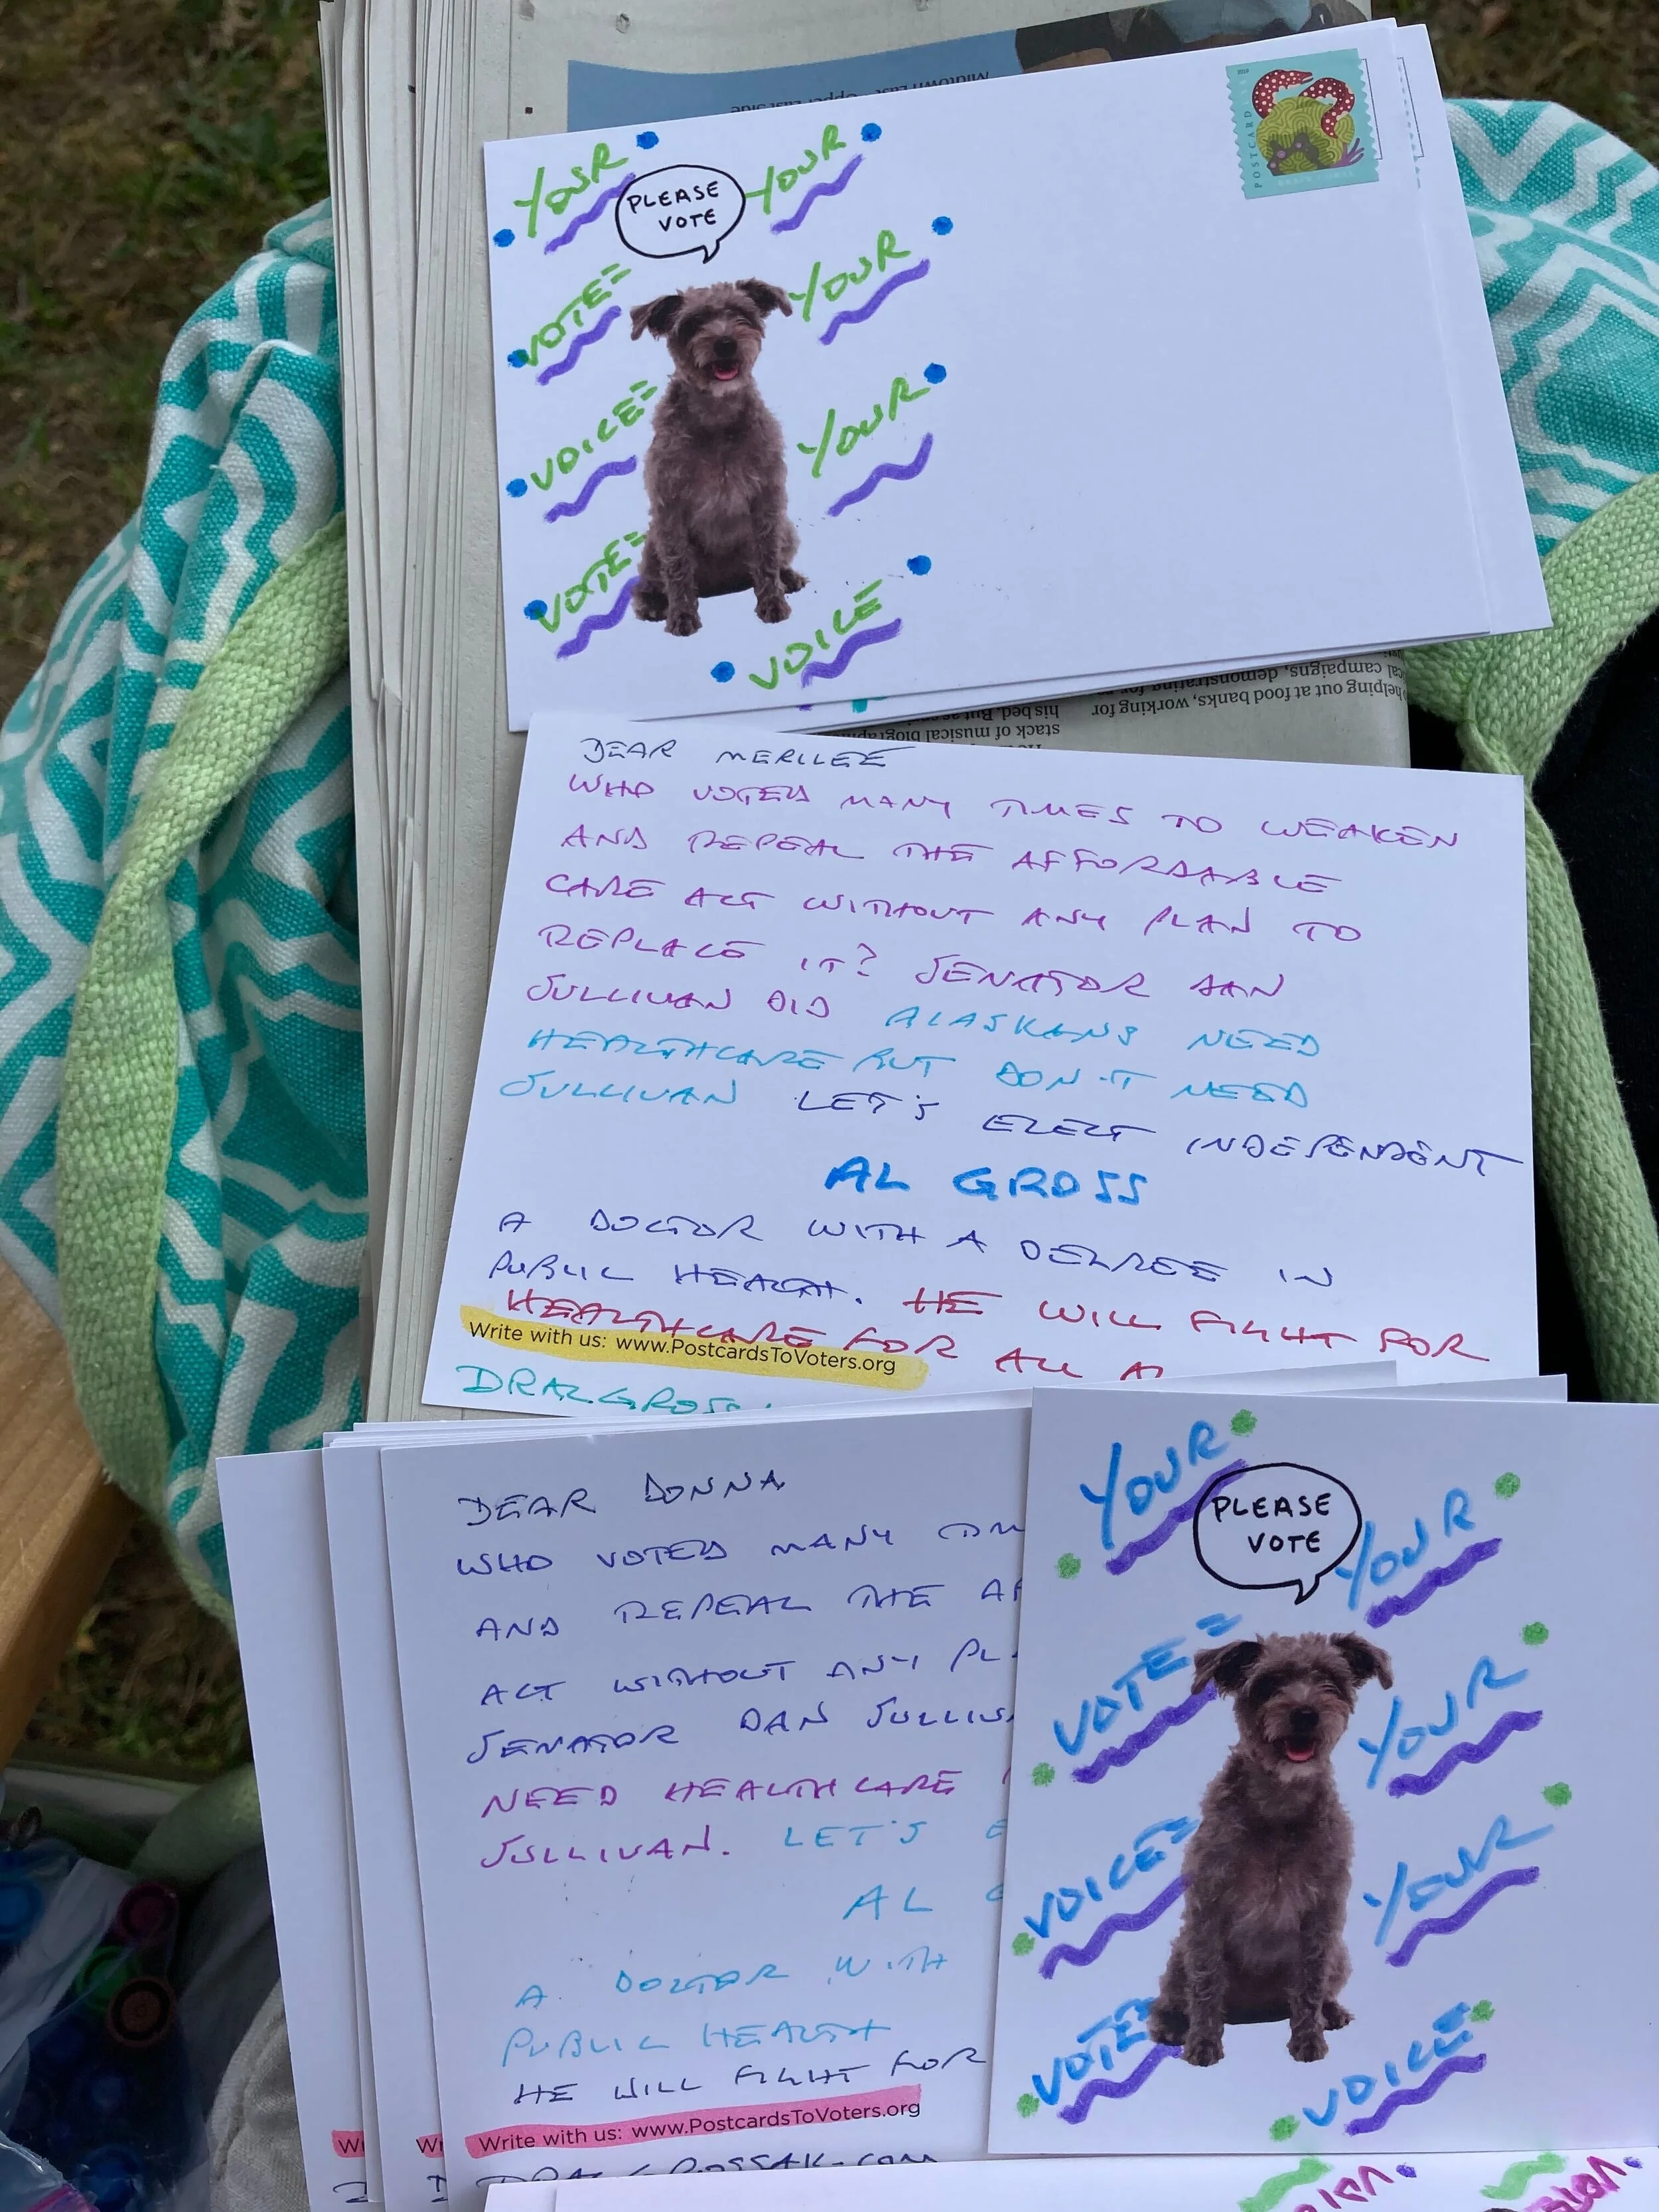 Midtown East Upper East Side
POSTCARD
YOUR
YOUR
PLEASE
VOTE
VOTE=
YOUR
VOICE=
YOUR
VOTE=
VOICE
helping out at food banks, working for
campaigns, demonstrating for
his bed. But as
stack of musical
DEAR MERILEE
WHO VOTED MANY TIMES TO WEAKEN
AND REPEAL THE AFFORDABLE
CARE ACT WITHOUT ANY PLAN TO
REPLACE IT? SENATOR DAN
SULLIVAN DID ALASKANS NEED
HEALTHCARE BUT DON'T NEED
SULLIVAN LET'S ELECT INDEPENDENT
AL GROSS
A DOCTOR WITH A DEGREE IN
PUBLIC HEALTH. HE WILL FIGHT FOR
HEALTHCARE FOR ALL
Write with us: www.PostcardsToVoters.org
DRALGROSS
DEAR DONNA
WHO VOTED MANY TIM
AND REPEAL THE AF
ACT WITHOUT ANY PL
SENATOR DAN SULLIV
NEED HEALTHCARE
SULLIVAN. LET'S E
AL G
A DOCTOR WITH
PUBLIC HEALTH
HE WILL FIGHT FOR
Write with us: www.PostcardsToVoters.org
DRALGROSSAK.COM
YOUR
PLEASE
VOTE
YOUR
VOTE=
YOUR
VOICE=
YOUR
VOTE=
VOICE
W
W